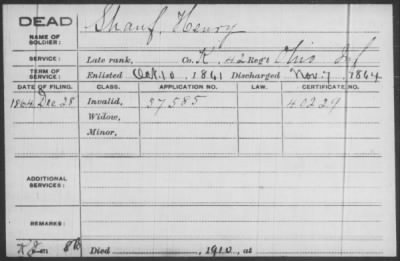 DEAD
NAME OF SOLDIER: Shauf, Henry
SERVICE: Late rank, Co. K, 42 Reg't Ohio Inf
TERM OF SERVICE: Enlisted Oct. 10, 1861 Discharged Nov. 7, 1864
DATE OF FILING. CLASS. APPLICATION NO. LAW. CERTIFICATE NO.
1864, Dec 28 Invalid, 57585 40229
Widow,
Minor,
ADDITIONAL SERVICES:
REMARKS:
Died , 1910, at